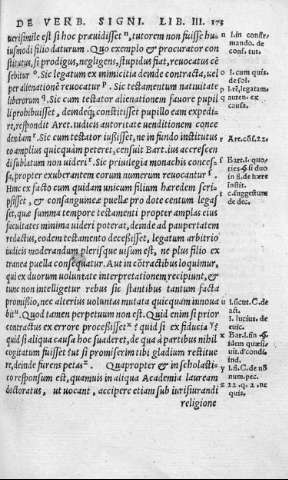 DE VERB. SIGNI. LIB. III. 175
uerisimile est si hoc præuidisset, tutorem non fuisse hu-
iusmodi filio daturum. Quo exemplo & procurator con
stitutus, si prodigus, negligens, stupidus fiat, reuocatus cē
sebitur. Sic legatum ex inimicitia demde contracta, uel
per alienationē reuocatur. Sic testamentum natiuitate
liberorum. Sic cum testator alienationem fauore pupil
li prohibuisset, demdeq́; constitisset pupillo eam expedi-
re, respondit Aret. iudicis autoritate uenditionem conce
dendam. Sic cum testator iusisset, ne in fundo institutus
quicquam peteret, censuit Bart. ius accrescen
di sublatum non uideri. Sic priuilegia monachis conces
sa, propter exuberantem eorum numerum reuocantur.
Hinc ex facto cum quidam unicum filium hæredem scri-
psisset, & consanguineæ puellæ pro dote centum legas
set, quæ summa tempore testamenti propter amplas eius
facultates minima uideri poterat, demde ad paupertatem
redactus, eodem testamento decessisset, legatum arbitrio
iudicis moderandum plerisque uisum est, ne plus filio ex
tranea puella consequatur. Aut in cōtractibus loquimur,
qui ex duorum uoluntate interpretationem recipiunt, &
tunc non intelligetur rebus sic stantibus tantum facta
promissio, nec alterius uoluntas mutata quicquam innoua
bit. Quod tamen perpetuum non est. Quid enim si prior
contractus ex errore processisset? quid si ex fiducia?
quid si aliqua causa hoc suaderet, de qua à partibus nihil
cogitatum fuisset ut si promiserim tibi gladium restitue
re, demde furens petas. Quapropter & in scholasti-
co responsum est, quamuis in aliqua Academia lauream
doctoratus, ut uocant, accipere etiam sub iurisiurandi
religione
l. in confir
mando. de
conf. tut.
l. cum quis.
de sol.
l. rē, legatam
ex
causa.
Aret. cōs. 22.
Bart. l.
in
8. de hæred
instit.
c. suggestum
de dec.
l. sicut. C. de
act.
l. lucius. de
euic.
Bar. l. si
idem
uit. d' cond.
ind.
l. si. C. de nō
num. pec.
22. q. 2. ne
quis.